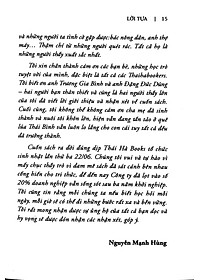 LỜI TỰA | 15
và những người ta tình cờ gặp được: bác nông dân, anh thợ
máy... Thậm chí từ những người quét rác. Tất cả họ là
những người thầy xuất sắc nhất.
Tôi xin chân thành cảm ơn các bạn bè, những học trò
tuyệt vời của mình, đặc biệt là tất cả các Thaihabookers.
Tôi biết ơn anh Trương Gia Bình và anh Đặng Đức Dũng
– hai người bạn thân thiết và cũng là hai người thầy lớn
của tôi đã viết lời giới thiệu và nhận xét về cuốn sách.
Cuối cùng, tôi không thể không cảm ơn cha mẹ đã sinh
thành và nuôi tôi khôn lớn, hiện vẫn đang tần tảo ở quê
lúa Thái Bình vẫn luôn lo lắng cho con cái tuy tất cả đều
đã trưởng thành.
Cuốn sách ra đời đúng dịp Thái Hà Books tổ chức
sinh nhật lần thứ ba 22/06. Chúng tôi vui và tự hào vì
mấy chục trang viết mơ ra sách đã sát cánh bên nhau
sống hiến cho tri thức, để đến nay Công ty đã lọt vào số
20% doanh nghiệp vẫn sống sót sau ba năm khởi nghiệp.
Tôi cũng tin rằng mỗi chúng ta nếu biết học hỏi mỗi
ngày, mỗi giờ sẽ có thể đi những bước rất xa và bền vững.
Tôi rất mong nhận được sự ủng hộ của tất cả bạn đọc và
hy vọng sẽ được đón nhận các nhận xét, góp ý.
Nguyễn Mạnh Hùng